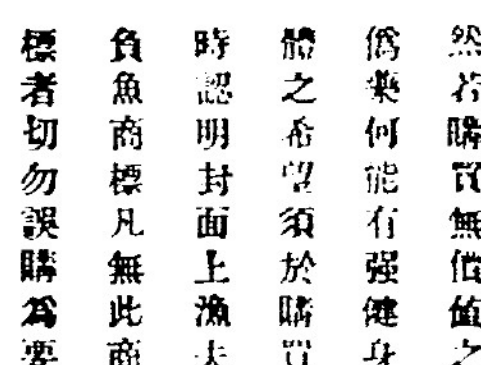 然若購買無價值之
僞藥何能有强健身
體之希望須於購買
時認明封面上漁夫
負魚商標凡無此商
標者切勿誤購為要